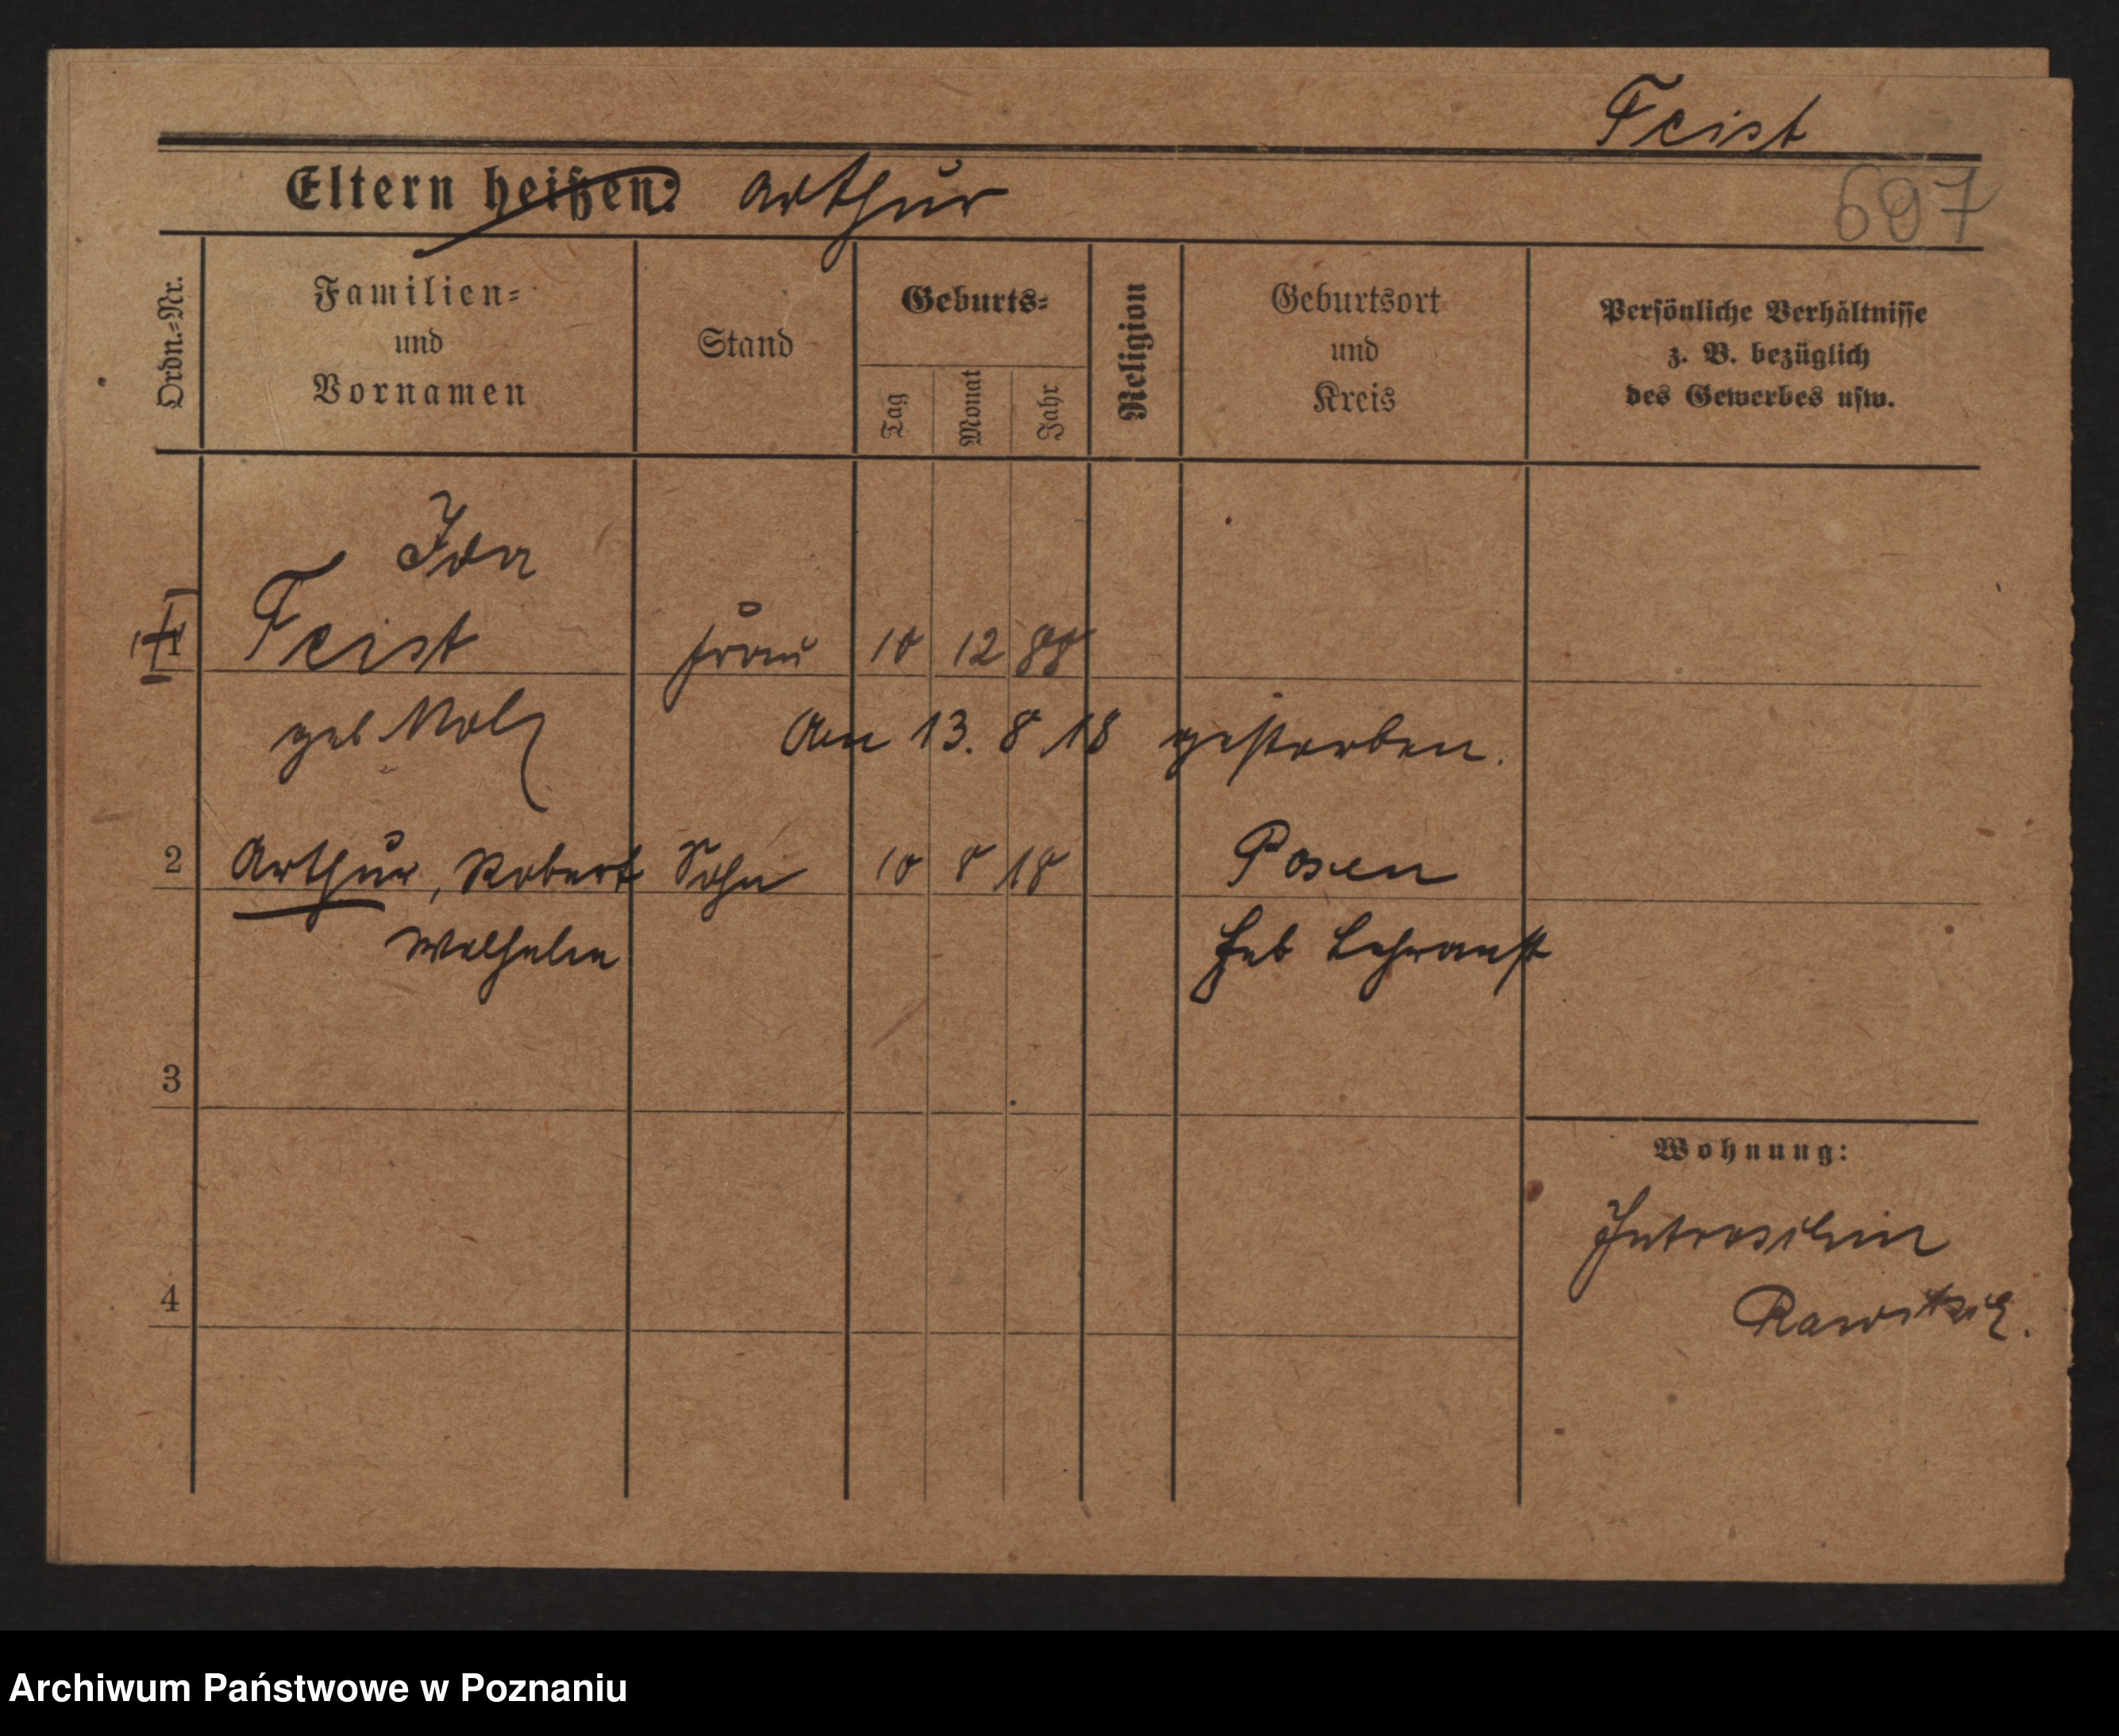 Feist
Eltern heißen: Arthur
697
Ordn.-Nr.
Familien-
und
Vornamen
Stand
Geburts-
Tag
Monat
Jahr
Religion
Geburtsort
und
Kreis
Persönliche Verhältnisse
z. B. bezüglich
des Gewerbes usw.
Ida
1 Feist Frau 10 12 88
geb Nolz Am 13. 8 18 gestorben.
2 Arthur, Robert Sohn 10 8 18 Posen
Wilhelm Heb Lehranst
3
Wohnung:
Jutroschin
4
Rawitsch.
Archiwum Państwowe w Poznaniu